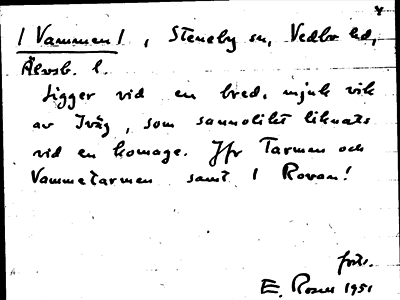 I Vammen I, Steneby sn, Vedbo hd,
Älvsb. l.
Ligger vid en bred, mjuk vik
av Iväg, som sannolikt liknats
vid en komage. Jfr Tarmen och
Vammetarmen samt I Rovan!
forts.
E. Rosell 1951